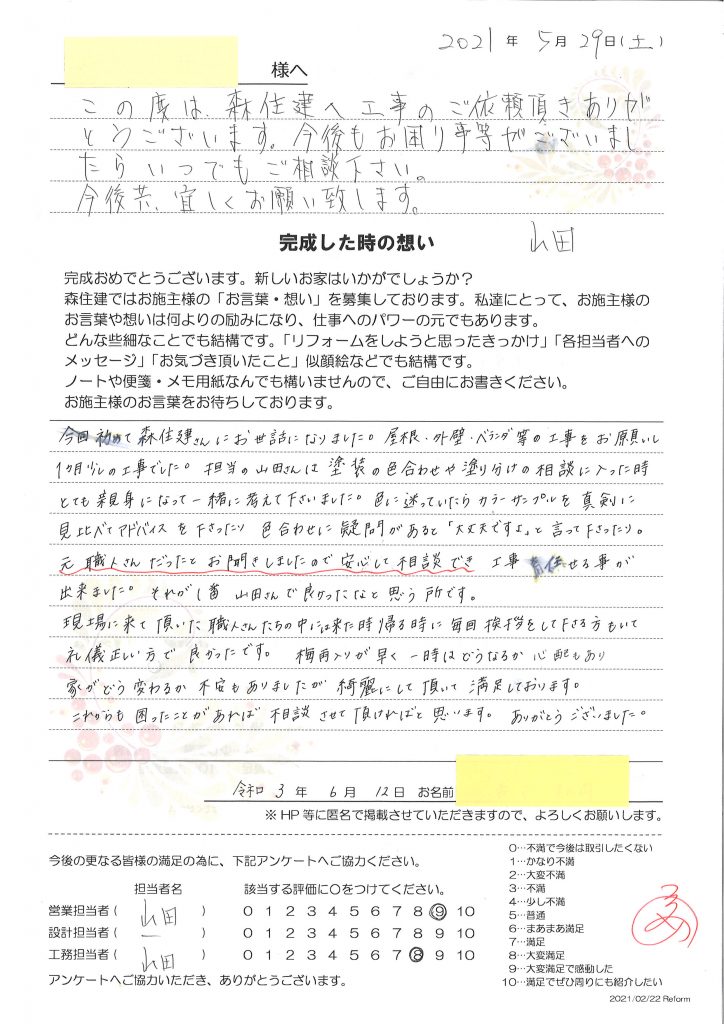 2021年 5月 29日(土)
様へ
この度は、森住建へ工事のご依頼頂きありが
とうございます。今後もお困り事等がございまし
たらいつでもご相談下さい。
今後共、宜しくお願い致します。
山田
完成した時の想い
完成おめでとうございます。新しいお家はいかがでしょうか？
森住建ではお施主様の「お言葉・想い」を募集しております。私達にとって、お施主様の
お言葉や想いは何よりの励みになり、仕事へのパワーの元でもあります。
どんな些細なことでも結構です。「リフォームをしようと思ったきっかけ」「各担当者への
メッセージ」「お気づき頂いたこと」似顔絵などでも結構です。
ノートや便箋・メモ用紙なんでも構いませんので、ご自由にお書きください。
お施主様のお言葉をお待ちしております。
今回初めて森住建さんにお世話になりました。屋根・外壁・ベランダ等の工事をお願いし
1ヶ月少しの工事でした。担当の山田さんは塗装の色合わせや塗り分けの相談に入った時
とても親身になって一緒に考えて下さいました。色に迷っていたらカラーサンプルを真剣に
見比べてアドバイスを下さったり 色合わせに疑問があると「大丈夫ですよ」と言って下さったり。
元職人さんだったとお聞きしましたので安心して相談でき 工事責任せる事が
出来ました。それが1番 山田さんで良かったなと思う所です。
現場に来て頂いた職人さんたちの中には来た時帰る時に毎回挨拶をして下さる方もいて
礼儀正しい方で良かったです。 梅雨入りが早く一時はどうなるか心配もあり
家がどう変わるか不安もありましたが綺麗にして頂いて満足しております。
これからも困ったことがあれば相談させて頂ければと思います。ありがとうございました。
令和 3年 6月 12日 お名前
※HP等に匿名で掲載させていただきますので、よろしくお願いします。
今後の更なる皆様の満足の為に、下記アンケートへご協力ください。
担当者名 該当する評価に○をつけてください。
営業担当者( 山田 ) 0 1 2 3 4 5 6 7 8 9 10
設計担当者( ー ) 0 1 2 3 4 5 6 7 8 9 10
工務担当者( 山田 ) 0 1 2 3 4 5 6 7 8 9 10
アンケートへご協力いただき、ありがとうございます。
0…不満で今後は取引したくない
1…かなり不満
2…大変不満
3…不満
4…少し不満
5…普通
6…まあまあ満足
7…満足
8…大変満足
9…大変満足で感動した
10…満足でぜひ周りにも紹介したい
2021/02/22 Reform